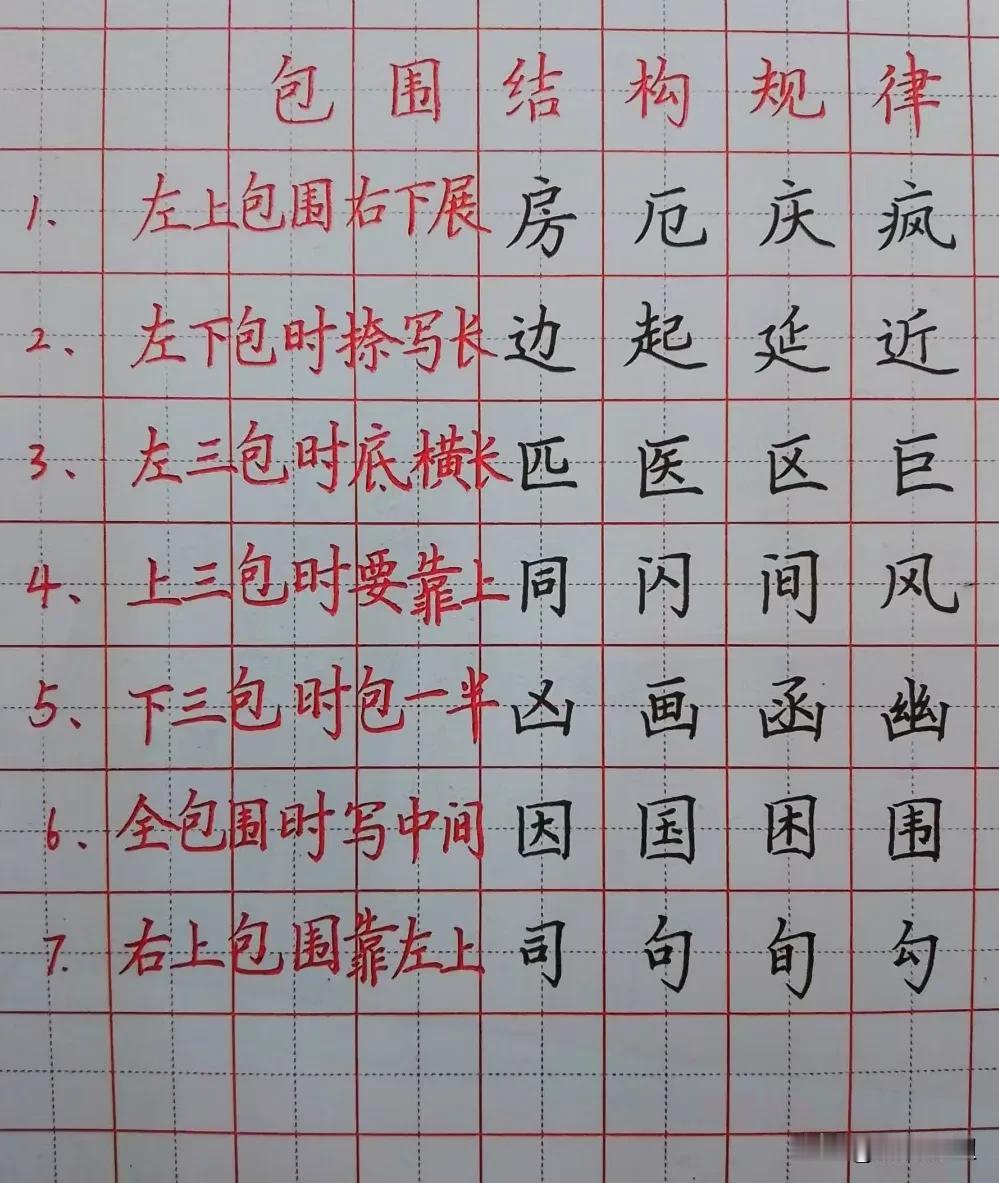 包围结构规律
1. 左上包围右下展 房 厄 庆 疯
2、 左下包时捺写长 边 起 延 近
3、 左三包时底横长 匹 医 区 巨
4、 上三包时要靠上 同 闪 间 风
5、 下三包时包一半 凶 画 函 幽
6、 全包围时写中间 因 国 困 围
7. 右上包围靠左上 司 句 旬 勾